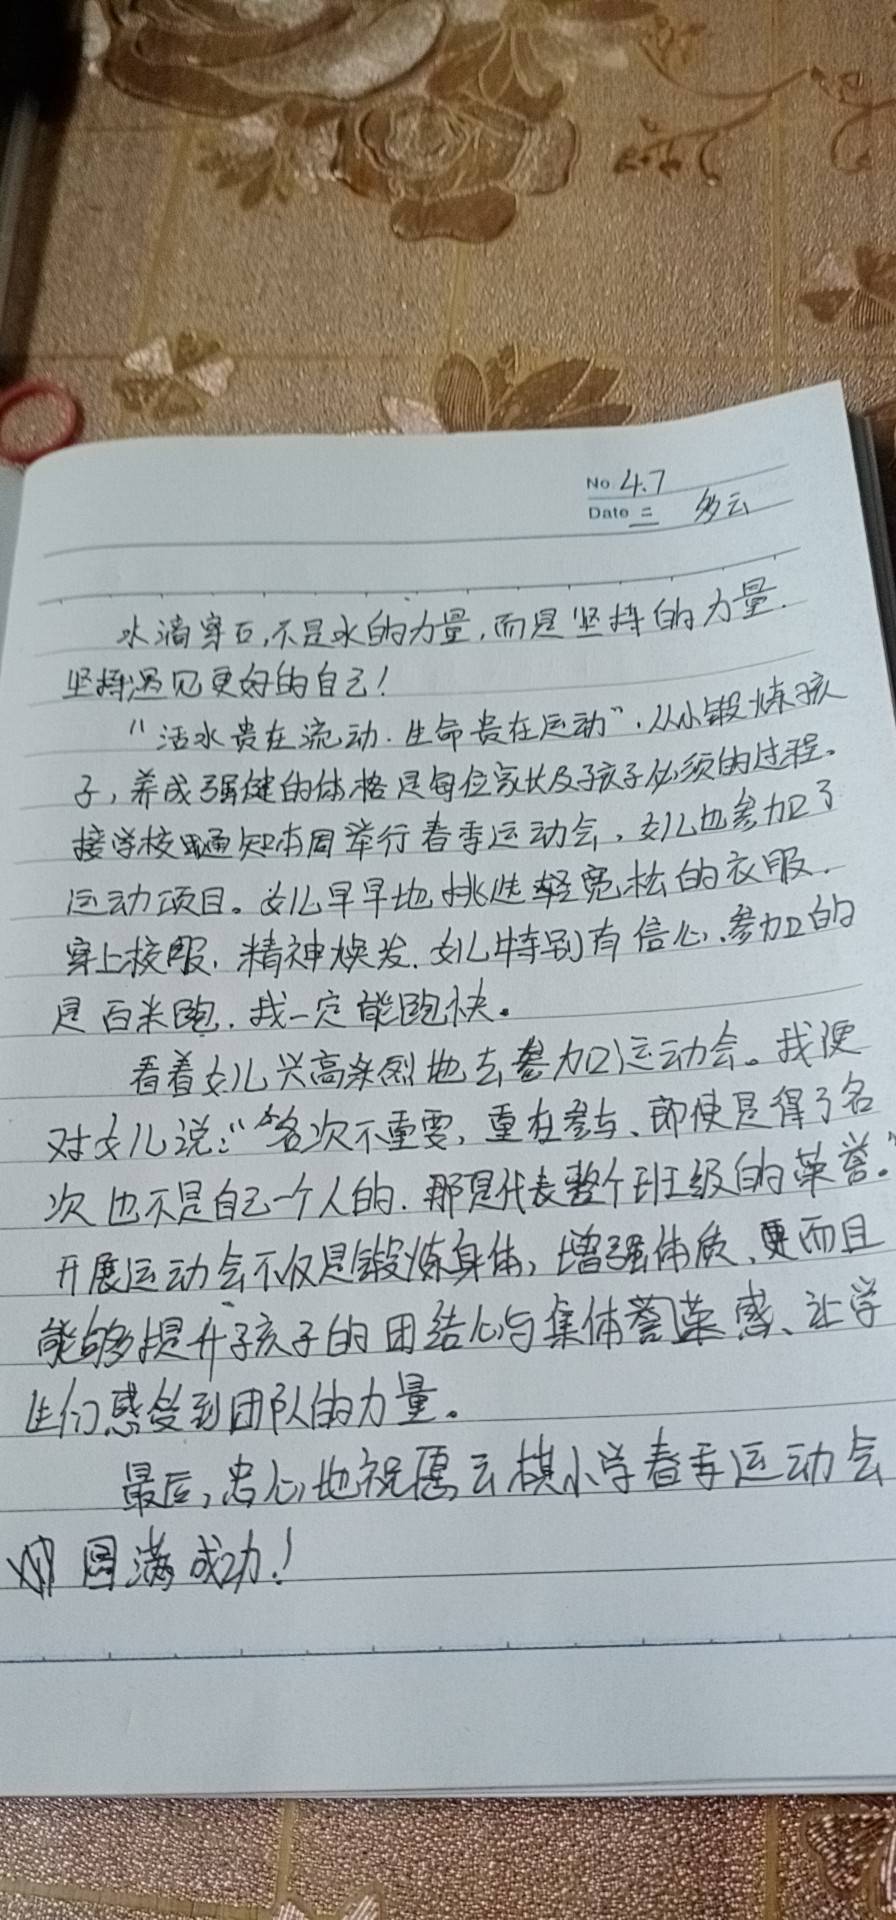 No. 4.7
Date 二 多云
水滴穿石,不是水的力量,而是坚持的力量.
坚持遇见更好的自己!
“活水贵在流动.生命贵在运动”.从小锻炼孩
子,养成强健的体格是每位家长及孩子必须的过程。
接学校通知本周举行春季运动会,女儿也参加了
运动项目。女儿早早地挑选轻宽松的衣服.
穿上校服,精神焕发.女儿特别有信心、参加的
是百米跑.我一定能跑快。
看着女儿兴高采烈地去参加运动会。我便
对女儿说:“名次不重要,重在参与、即使是得了名
次也不是自己一个人的.那是代表整个班级的荣誉。”
开展运动会不仅是锻炼身体,增强体质、更而且
能够提升孩子的团结心与集体誉荣感、让学
生们感受到团队的力量。
最后,忠心地祝愿云棋小学春季运动会
圆满成功!